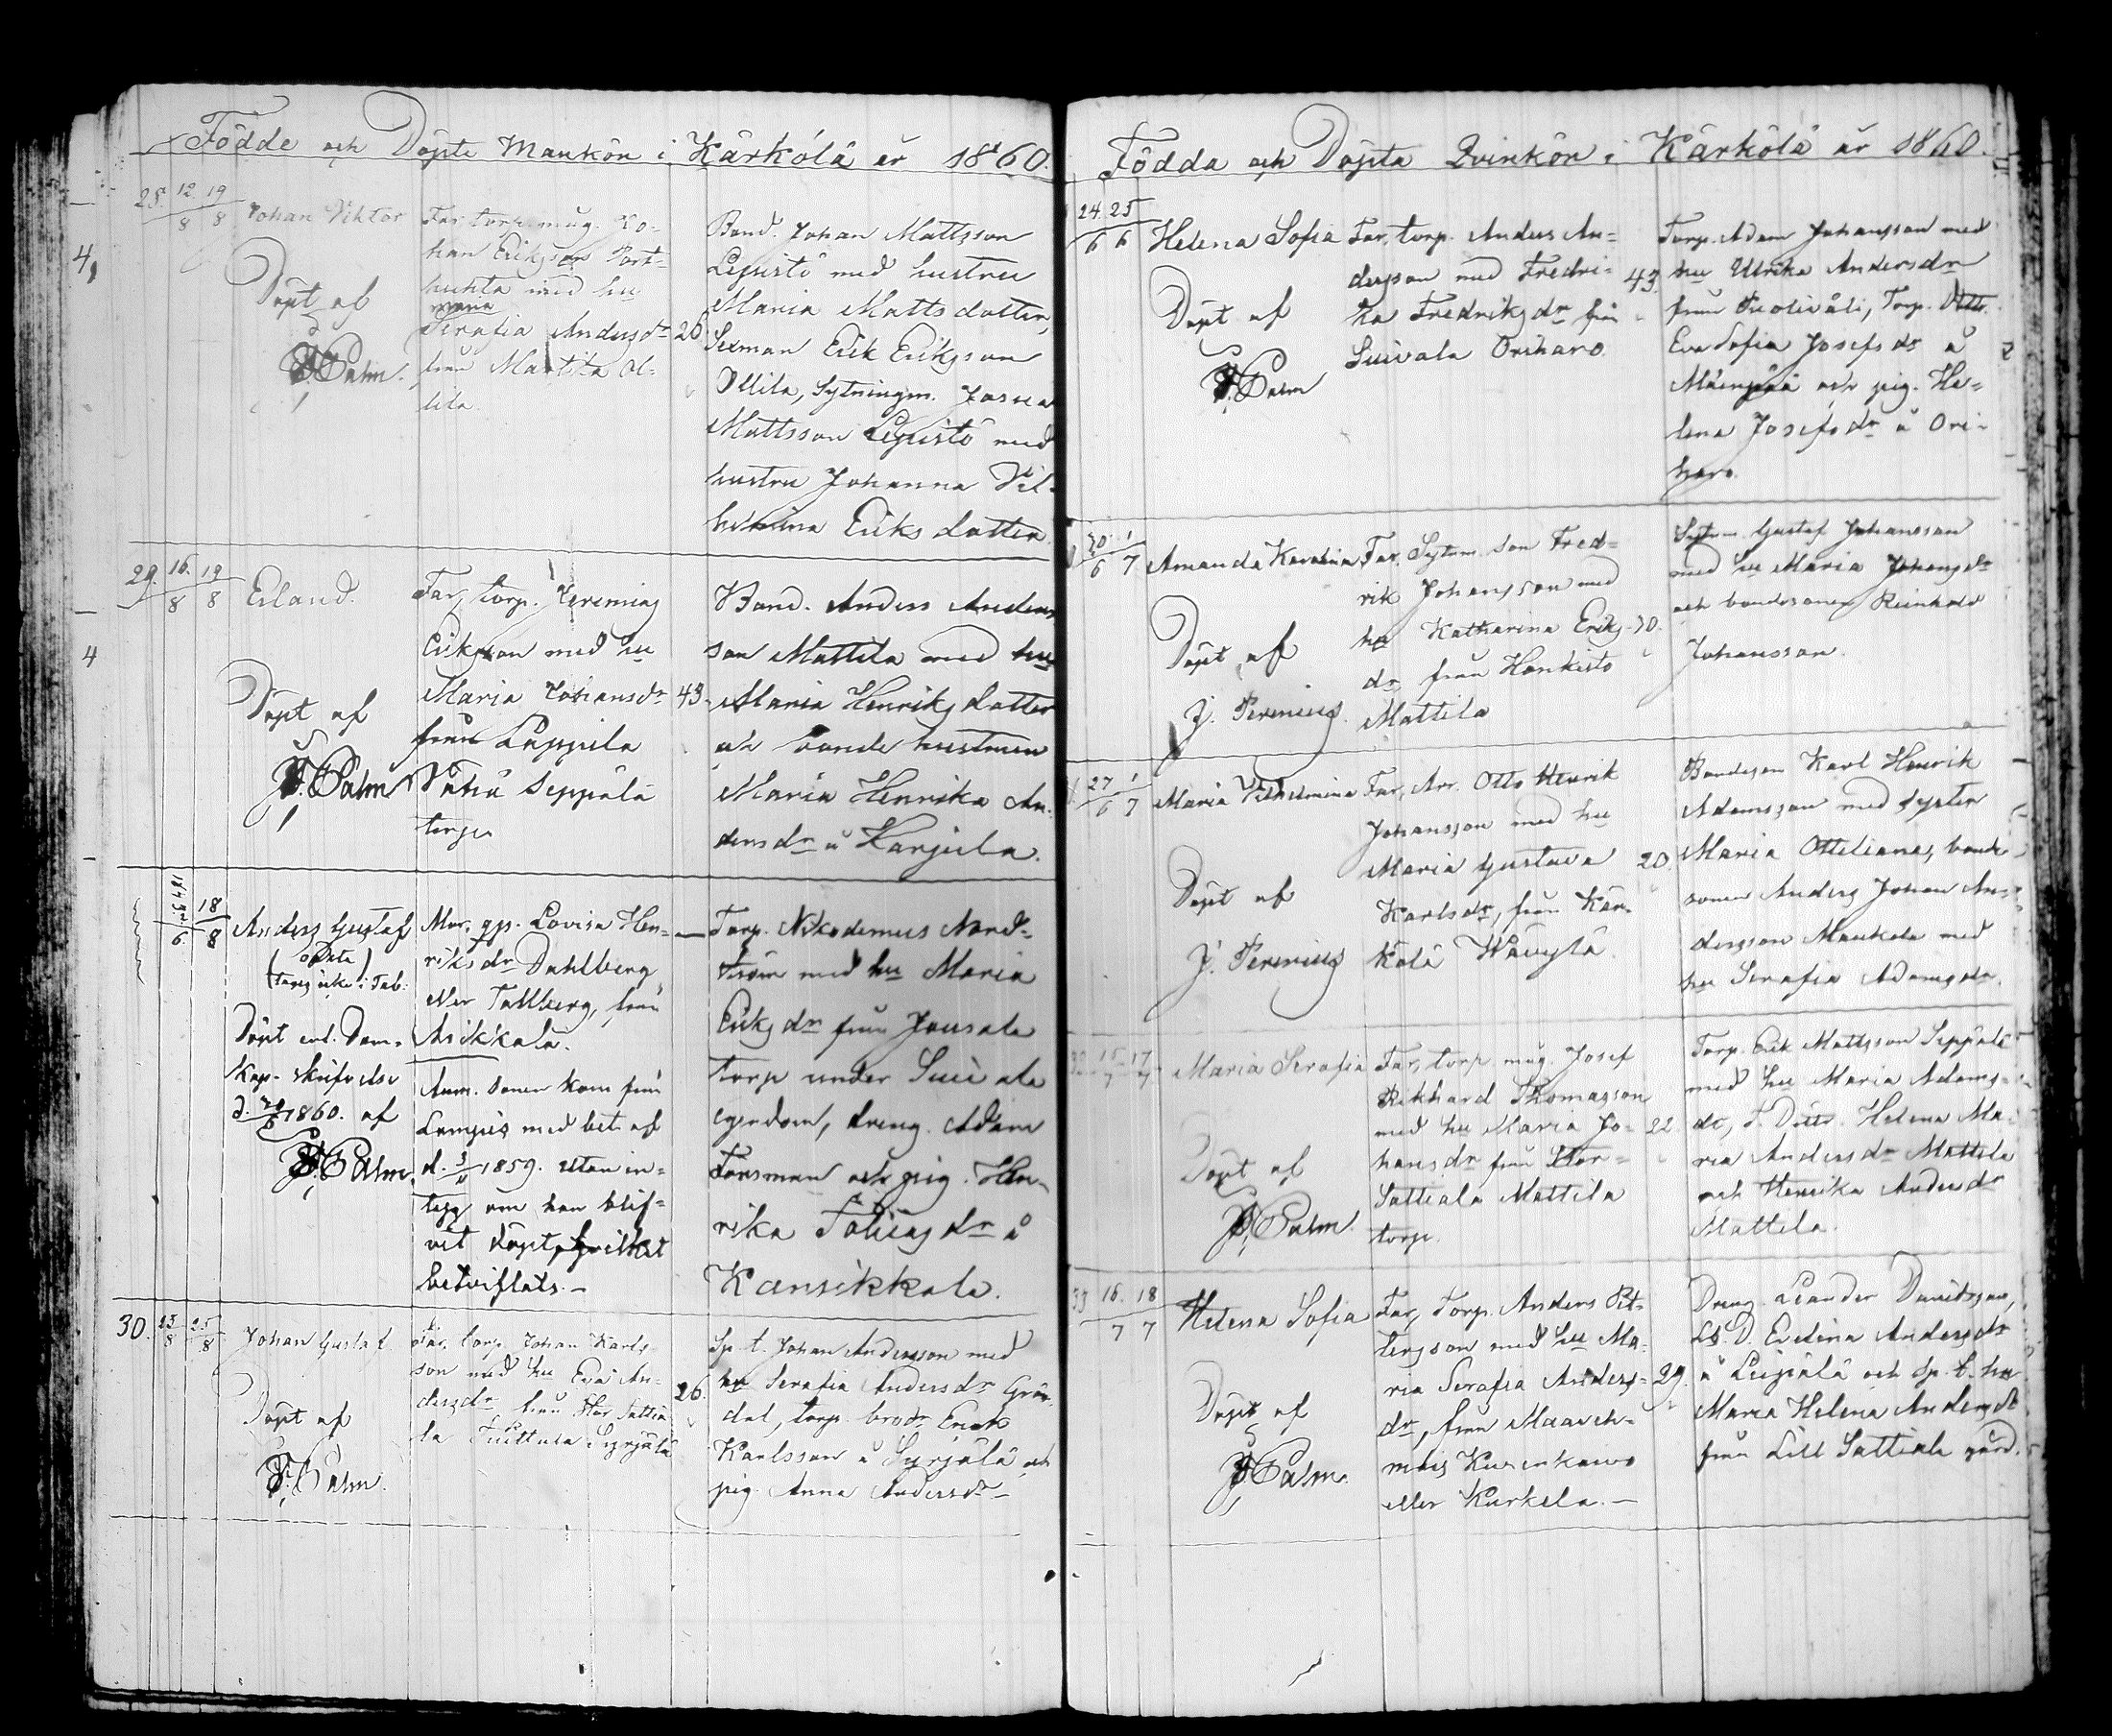 Födde och Döpte Mankön i Kärkölä år 1860.
28. 12/8 19/8 Johan Viktor
Döpt af
Palm.
Far torpsmåg. Jo-
han Eriksson Port-
huhta med hu
Maria
Serafia Andersdr 26.
från Mattila Ol-
lila.
Bond. Johan Mattsson
Lepistö med hustru
Maria Matts dotter,
Sexman Erik Eriksson
Ollila, Sytningm. Josua
Mattsson Lepistö med
hustru Johanna Vil-
helmina Eriks dotter.
29. 16/8 19/8 Erland.
Döpt af
Palm
Far, torp. Jeremias
Eriksson med hu
Maria Johansdr 43.
från Lappila
Seppälä
torp
Bond. Anders Anders
son Mattila med hu
Maria Henriks dotter
och bonde hustrun
Maria Henrika An-
dersdr å Karjula.
18/8 Anders Gustaf
oäkta
(tages icke i Tab.)
Döpt enl. Dom-
Kap. skrifvelse
1860. af
Palm.
Mor, qp. Lovisa Hen-
riks dr Dahlberg
eller Tallberg, från
Asikkala.
Anm. Sonen kom från
Lampis med bet. af
d. 3/11 1859. utan in-
tyg om han blif-
vit döpt, hvilket
betviflats. —
Torp. Nikodemus Nord-
ström med hu Maria
Eriks dr från Jousala
torp under
egendom, dreng. Adam
Forsman och pig. Hen-
rika dr å
Kansikkala.
30. 23/8 25/8 Johan Gustaf.
Döpt af
Palm.
Far, torp. Johan Karls
son med hu Eva An-
dersdr från Stor Sattia- 26.
la Syrjälä
Sp. t. Johan Andersson med
hu Serafia Andersdr Grön-
dal, torp. brodr Erik
Karlsson å Syrjälä och
pig. Anna Andersdr —
Födda och Döpta Qvinkön i Kärkölä år 1860.
24/6 25/6 Helena Sofia
Döpt af
Palm
Far, torp. Anders An-
dersson med Fredri- 43.
ka Fredriksdr från
Suivala Oriharo
Torp. Adam Johansson med
hu Ulrika Andersdr
från Torp. Dotter
Eva Sofia Josefs dr å
och pig. He-
lena Josefs dr å Ori-
haro.
30/6 1/7 Amanda Karolina
Döpt af
J. Perenius.
Far, Sytnm. son Fred-
rik Johansson med
hu Katharina Eriks- 30.
dr, från Honkisto
Mattila
Sytnm. Gustaf Johansson
med hu Maria Johansdr
och bondesonen Reinhold
Johansson.
27/6 1/7 Maria Vilhelmina
Döpt af
J. Perenius
Far, Arr. Otto Henrik
Johansson med hu
Maria Gustava 20.
Karlsdr, från Kär-
kölä
Bondeson Karl Henrik
Adamsson med syster
Maria Otteliana, bonde
sonen Anders Johan An-
dersson Maukola med
hu Serafia Adamsdr.
32. 15/7 17/7 Maria Serafia
Döpt af
Palm.
Far, torp. måg. Josef
Rikhard Thomasson
med hu Maria Jo- 22.
hansdr från Stor-
Sattiala Mattila
torp.
Torp. Erik Mattsson Seppälä
med hu Maria Adams-
dr, T. Dottr. Helena Ma-
ria Andersdr Mattila
och Henrika Andersdr
Mattila.
33 16/7 18/7 Helena Sofia
Döpt af
Palm.
Far, Torp. Anders Pet-
tersson med hu Ma-
ria Serafia Anders- 29.
dr, från Maaveh-
mais
eller Kurkela. —
Dreng. Leander Davidsson,
Evelina Andersdr
å och Sp. t. hu
Maria Helena Andersdr
från Lill Sattiala gård.
4
4